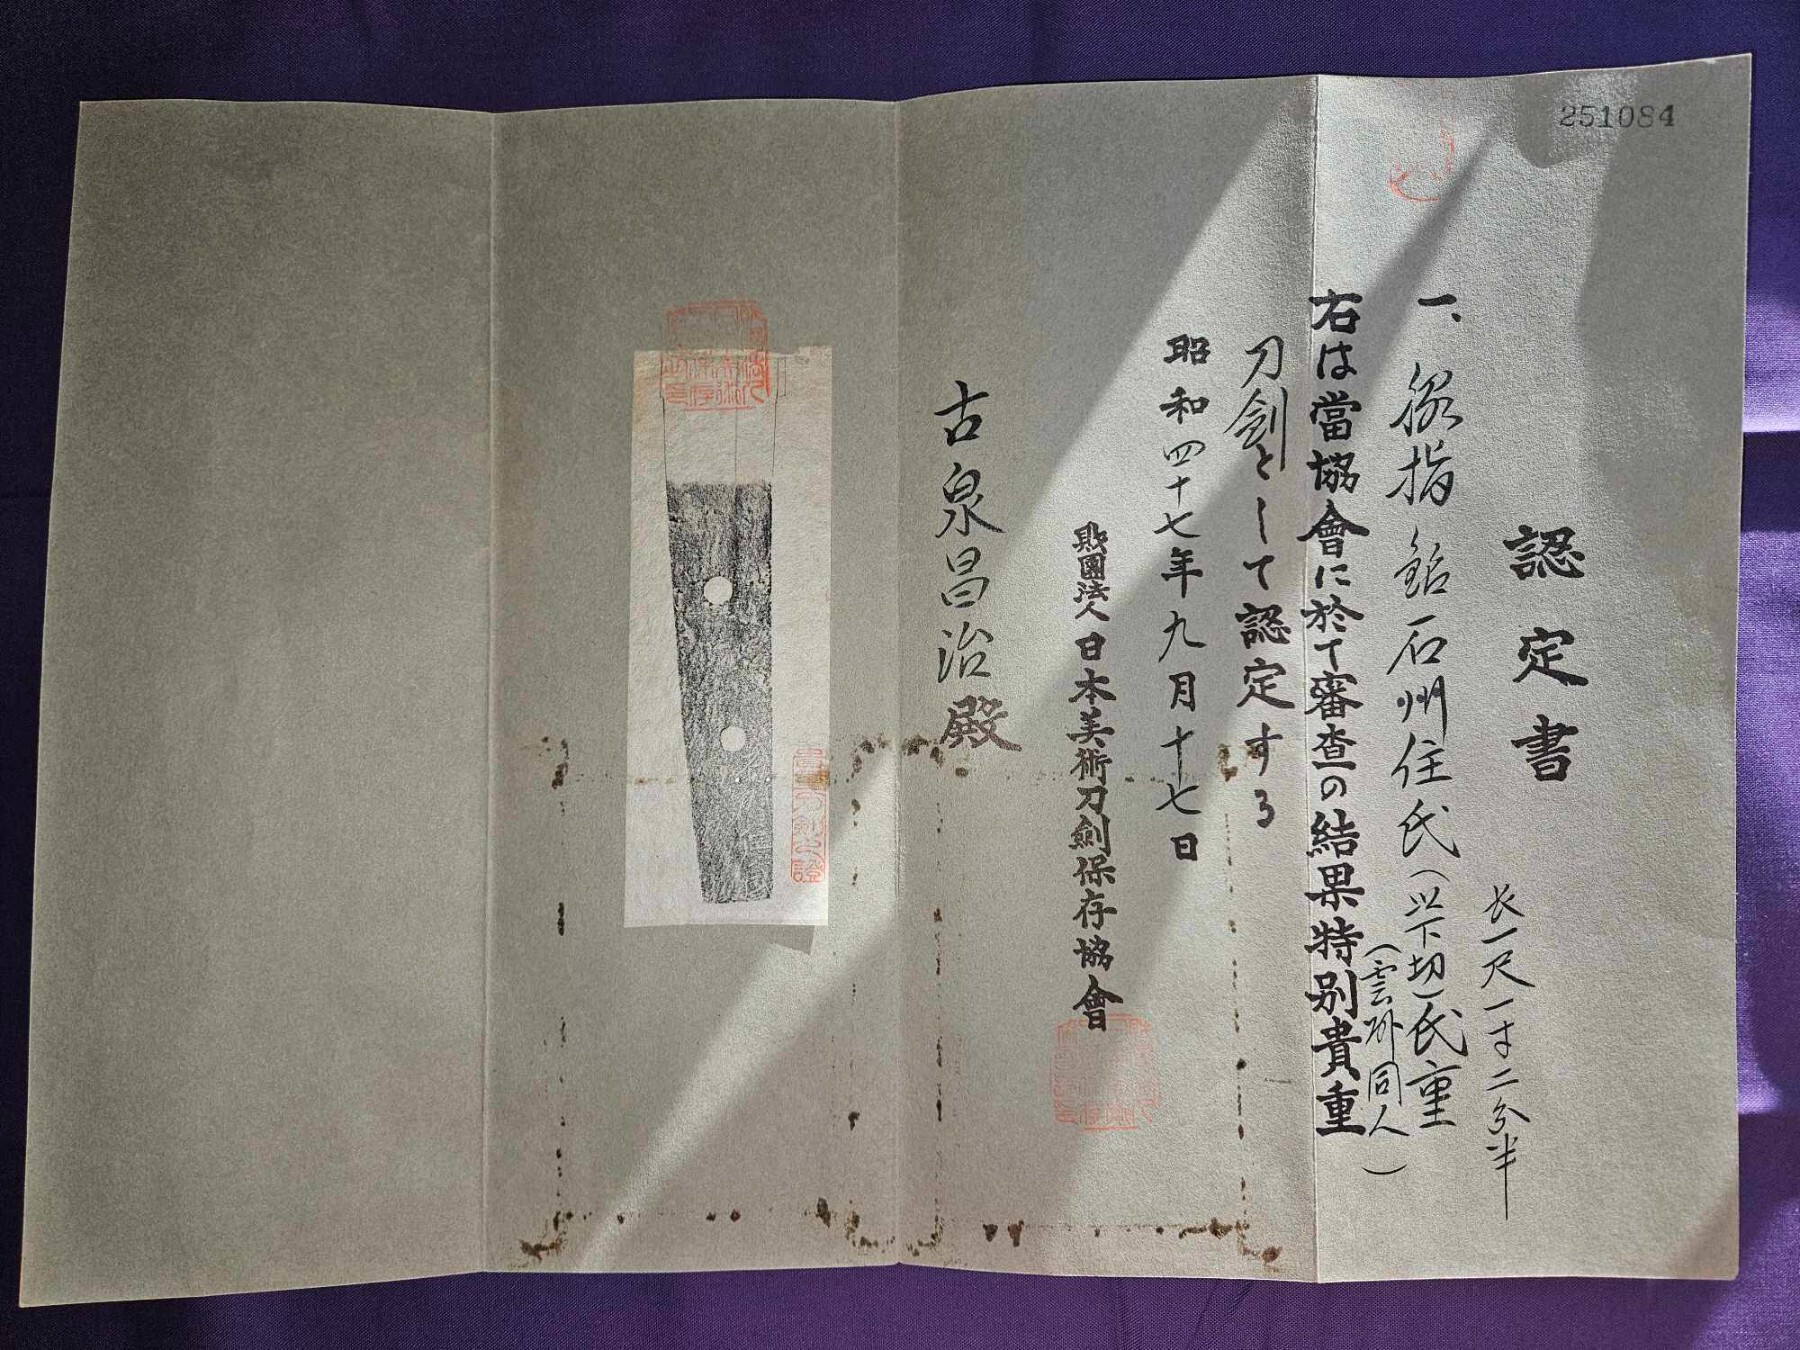 251084
認定書
長一尺一寸二分半
一、脇指 銘石州住氏(以下切)氏重
(雲州同人)
右は當協會に於て審査の結果特別貴重
刀劍として認定する
昭和四十七年九月十七日
財團法人日本美術刀劍保存協會
古泉昌治殿
貴重刀剣之證